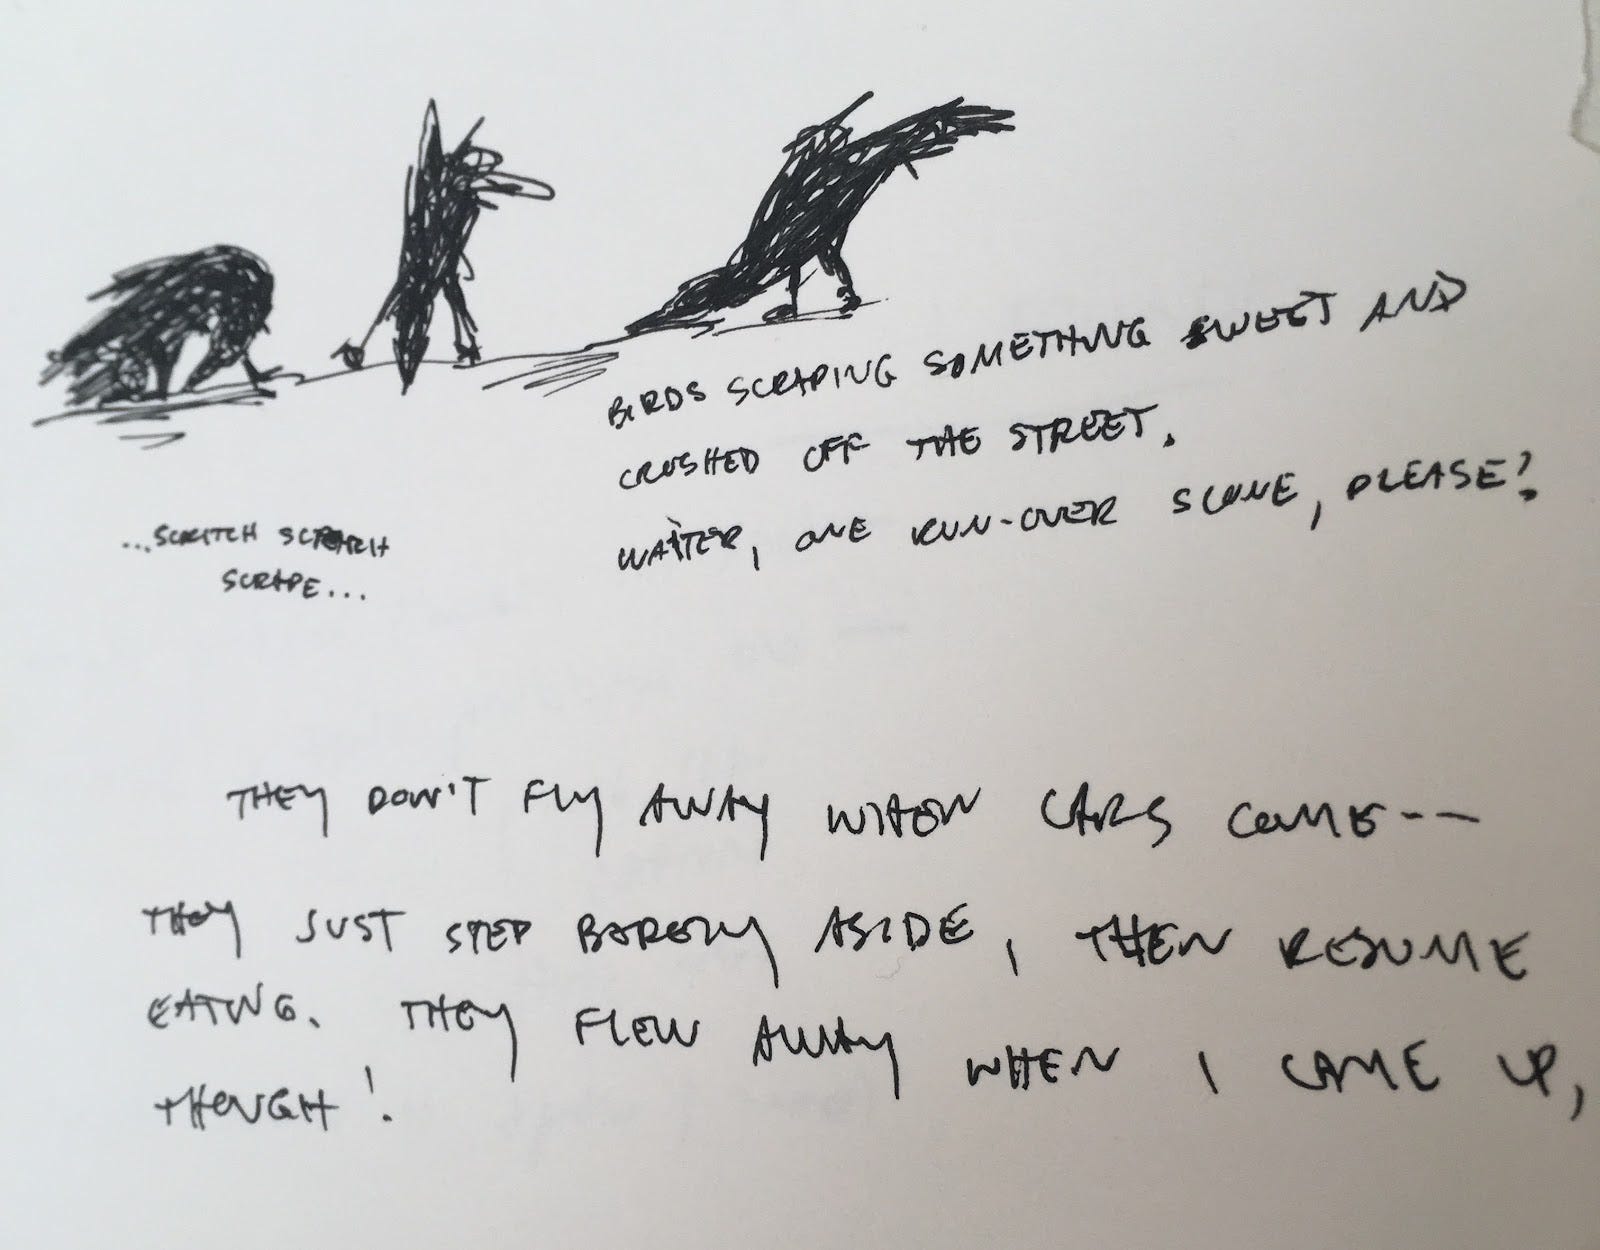 BIRDS SCRAPING SOMETHING SWEET AND
CRUSHED OFF THE STREET.
WAITER, ONE RUN-OVER SCONE, PLEASE?
...SCRITCH SCRATCH
SCRAPE...
THEY DON'T FLY AWAY WHEN CARS COME--
THEY JUST STEP BARELY ASIDE, THEN RESUME
EATING. THEY FLEW AWAY WHEN I CAME UP,
THOUGH!